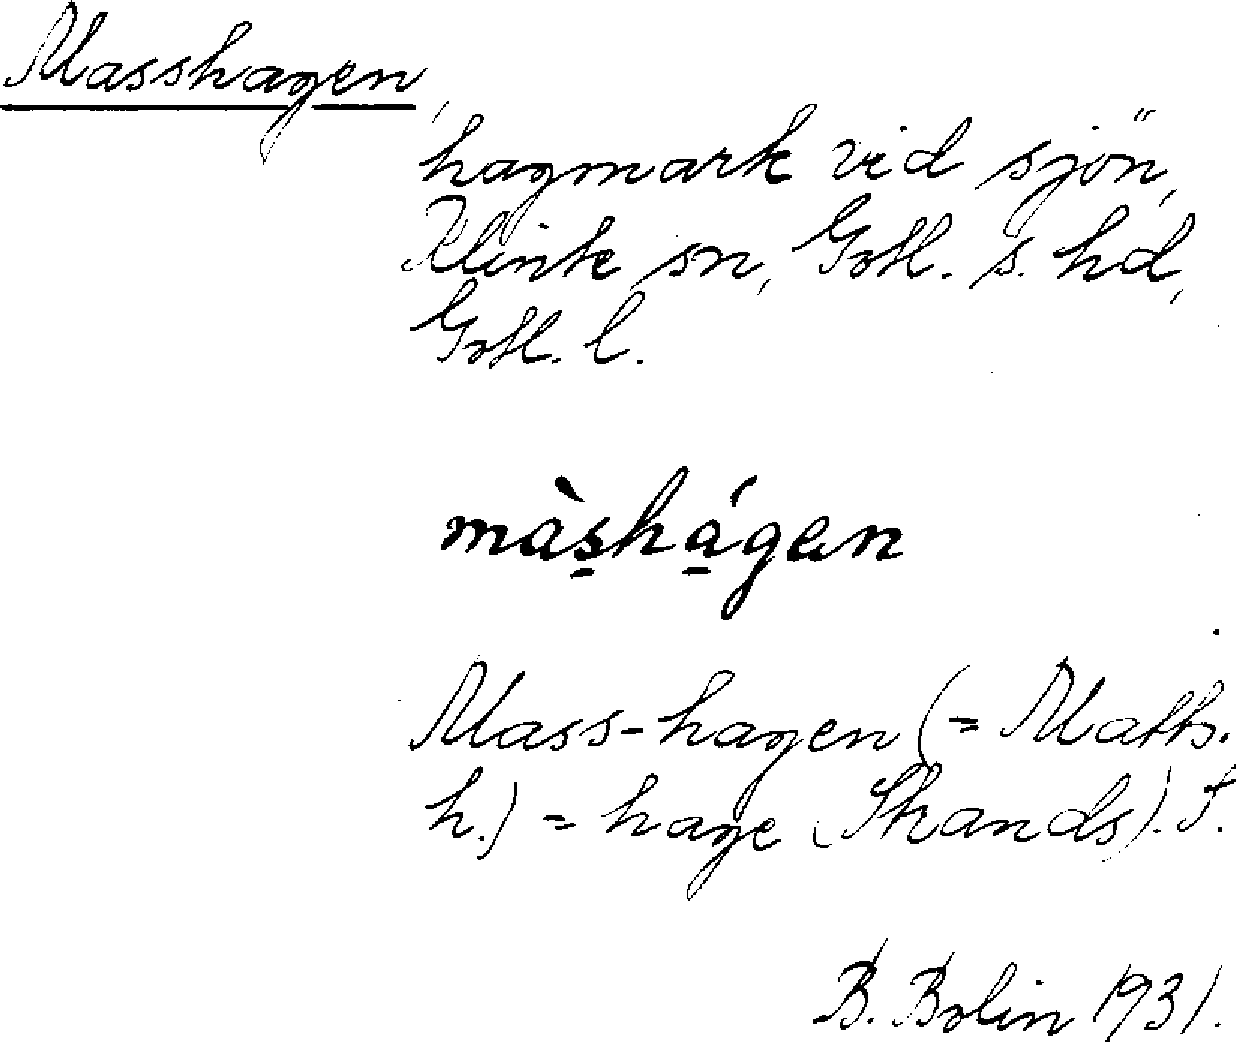 Masshagen,
hagmark vid sjön,
Klinte sn, Gotl. s. hd,
Gotl. l.
màs̠há̠gen
Mass-hagen (= Matts.
h.) = hage (Skands). †.
B. Bolin 1931.